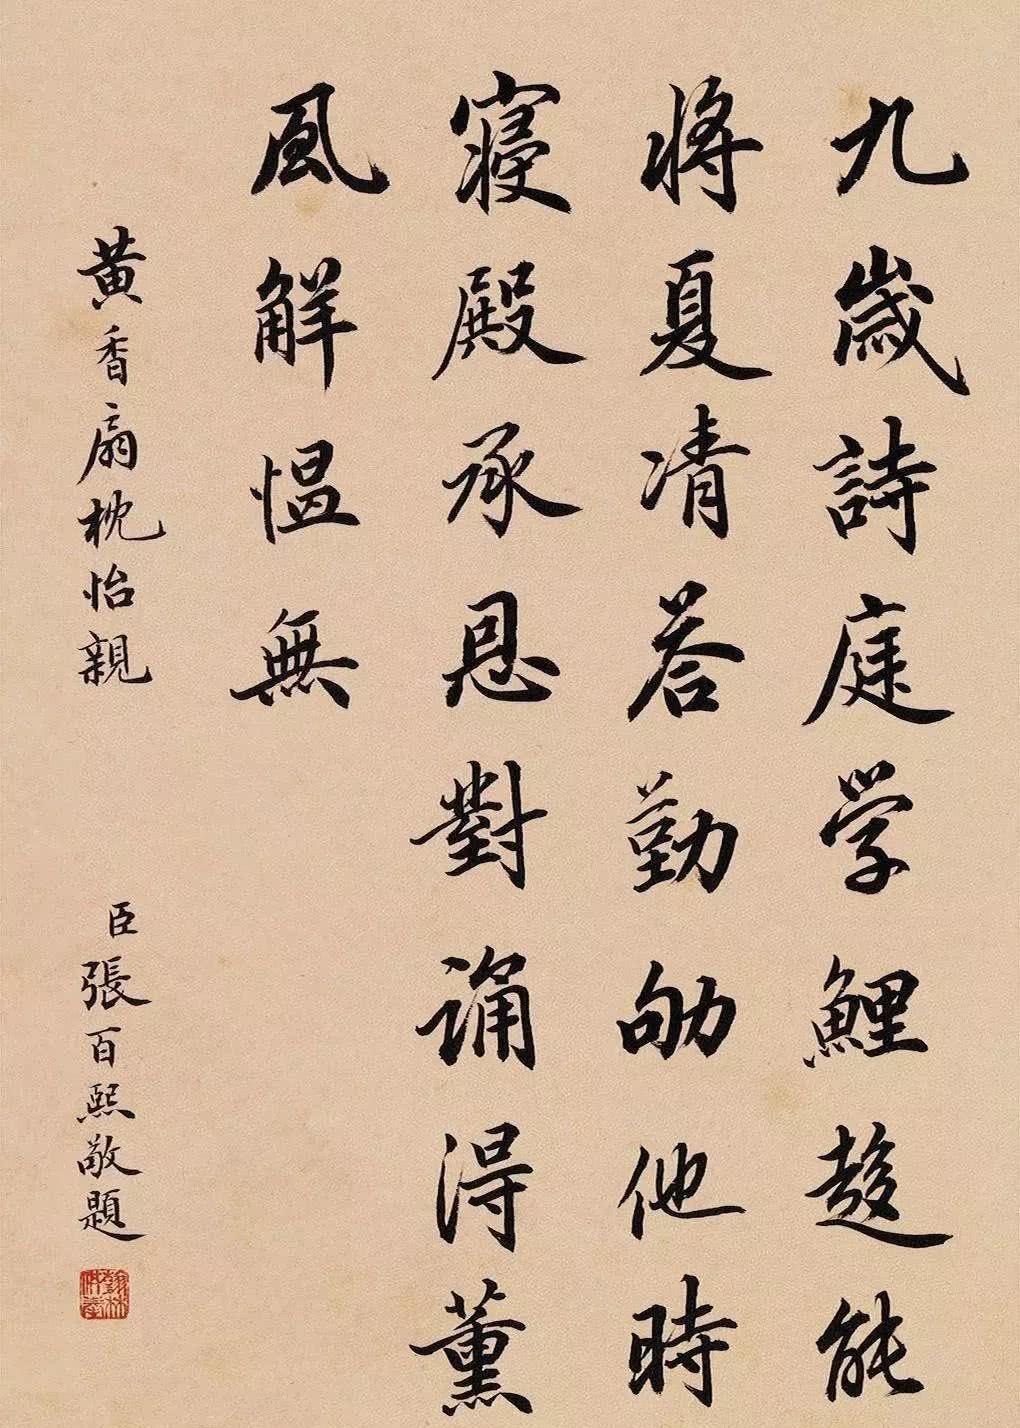 九歲詩庭学鯉趍能
將夏凊荅勤劬他時
寢殿承恩對誦得薰
風解愠無
黃香扇枕怡親
臣張百熙敬題